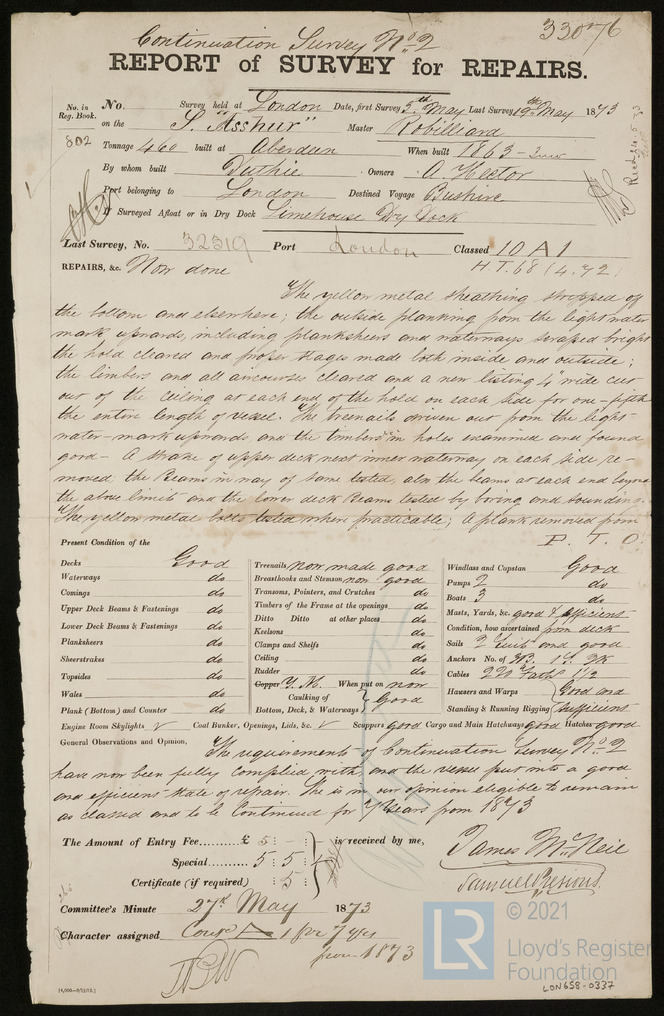 Continuation Survey No. 2
330 76
REPORT of SURVEY for REPAIRS.
No. in Reg. Book. No. Survey held at London Date, first Survey 5th May Last Survey 19th May 1873
802 on the S. "Asshur" Master Robilliard
Tonnage 460 built at Aberdeen When built 1863
By whom built Duthie Owners A. Hector
Port belonging to London Destined Voyage Bushire
If Surveyed Afloat or in Dry Dock Limehouse Dry Dock
Last Survey, No. 32319 Port London Classed 10 A 1
H.T. 68 (4.72)
REPAIRS, &c. Now done
The yellow metal sheathing stripped off
the bottom and elsewhere; the outside planking from the light water
mark upwards, including planksheers and waterways scraped bright
the hold cleared and proper stages made both inside and outside;
the limbers and all aircourses cleared and a new listing 4" wide cut
out of the ceiling at each end of the hold on each side for one-fifth
the entire length of vessel. The treenails driven out from the light-
water-mark upwards and the timbers in holes examined and found
good- A strake of upper deck next inner waterway on each side re-
moved, the Beams in way of same tested, also the beams at each end beyond
the above limits and the lower deck Beams tested by boring and sounding.
The yellow metal bolts tested where practicable; A plank removed from
P. T. O.
Present Condition of the
Decks Good
Waterways do
Comings do
Upper Deck Beams & Fastenings do
Lower Deck Beams & Fastenings do
Planksheers do
Sheerstrakes do
Topsides do
Wales do
Plank (Bottom) and Counter do
Treenails now made good
Breasthooks and Stemson now good
Transoms, Pointers, and Crutches do
Timbers of the Frame at the openings do
Ditto Ditto at other places do
Keelsons do
Clamps and Shelfs do
Ceiling do
Rudder do
Copper Y.M. When put on now
Caulking of Bottom, Deck, & Waterways Good
Windlass and Capstan Good
Pumps 2 do
Boats 3 do
Masts, Yards, &c. good & efficient
Condition, how ascertained from deck
Sails 2 Suits and good
Anchors No. of 3B. 1S. 2K
Cables 220 Fath 1 1/2
Hawsers and Warps Good and
Standing & Running Rigging sufficient
Engine Room Skylights ✓ Coal Bunker, Openings, Lids, &c. ✓ Scuppers good Cargo and Main Hatchways good Hatches good
General Observations and Opinion, The requirements of Continuation Survey No. 2
have now been fully complied with, and the vessel put into a good
and efficient state of repair. She is in our opinion eligible to remain
as classed and to be Continued for 7 Years from 1873
The Amount of Entry Fee......... £ 5 : - : is received by me,
Special......... 5 : 5 :
Certificate (if required) : 5 :
James McNeil
Samuel Presious.
Committee's Minute 27th May 1873
Character assigned Cont A 1 for 7 yrs
from 1873
[4,000—8/12/72.]
LR © 2021
Lloyd's Register
Foundation
LON658-0337